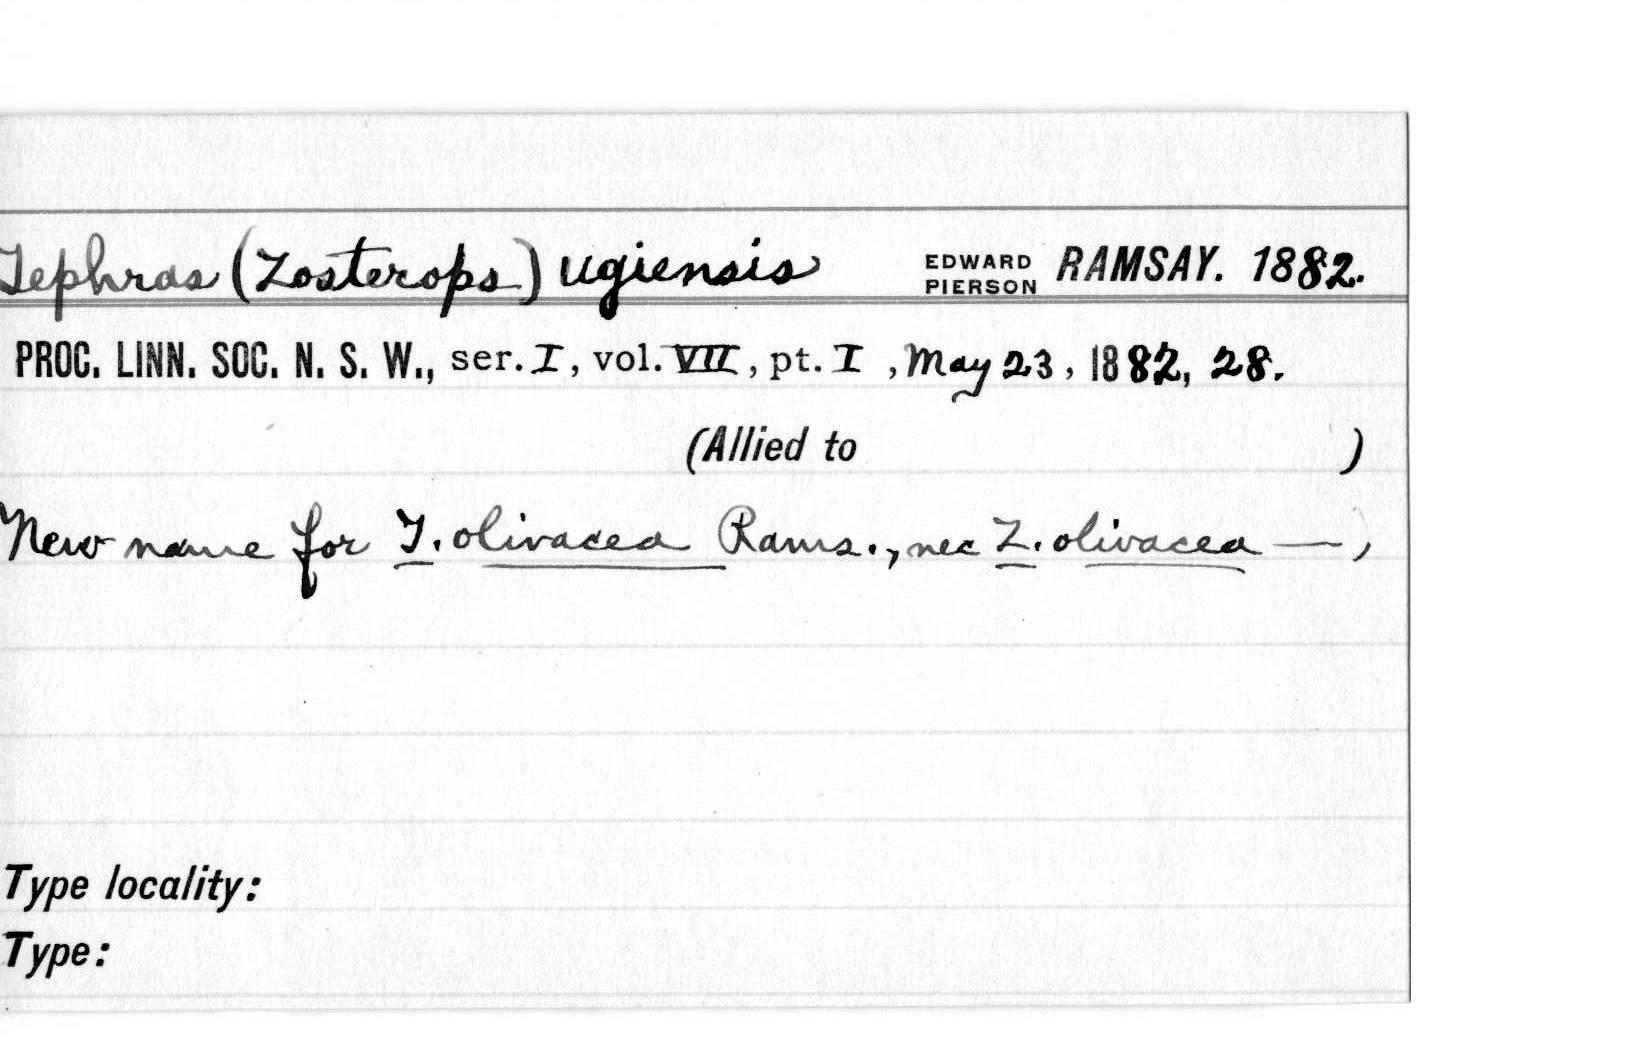 Tephras (Zosterops) ugiensis EDWARD PIERSON RAMSAY. 1882.
PROC. LINN. SOC. N. S. W., ser. I, vol. VII, pt. I, May 23, 1882, 28.
(Allied to )
New name for T. olivacea Rams., nec Z. olivacea —,
Type locality:
Type: